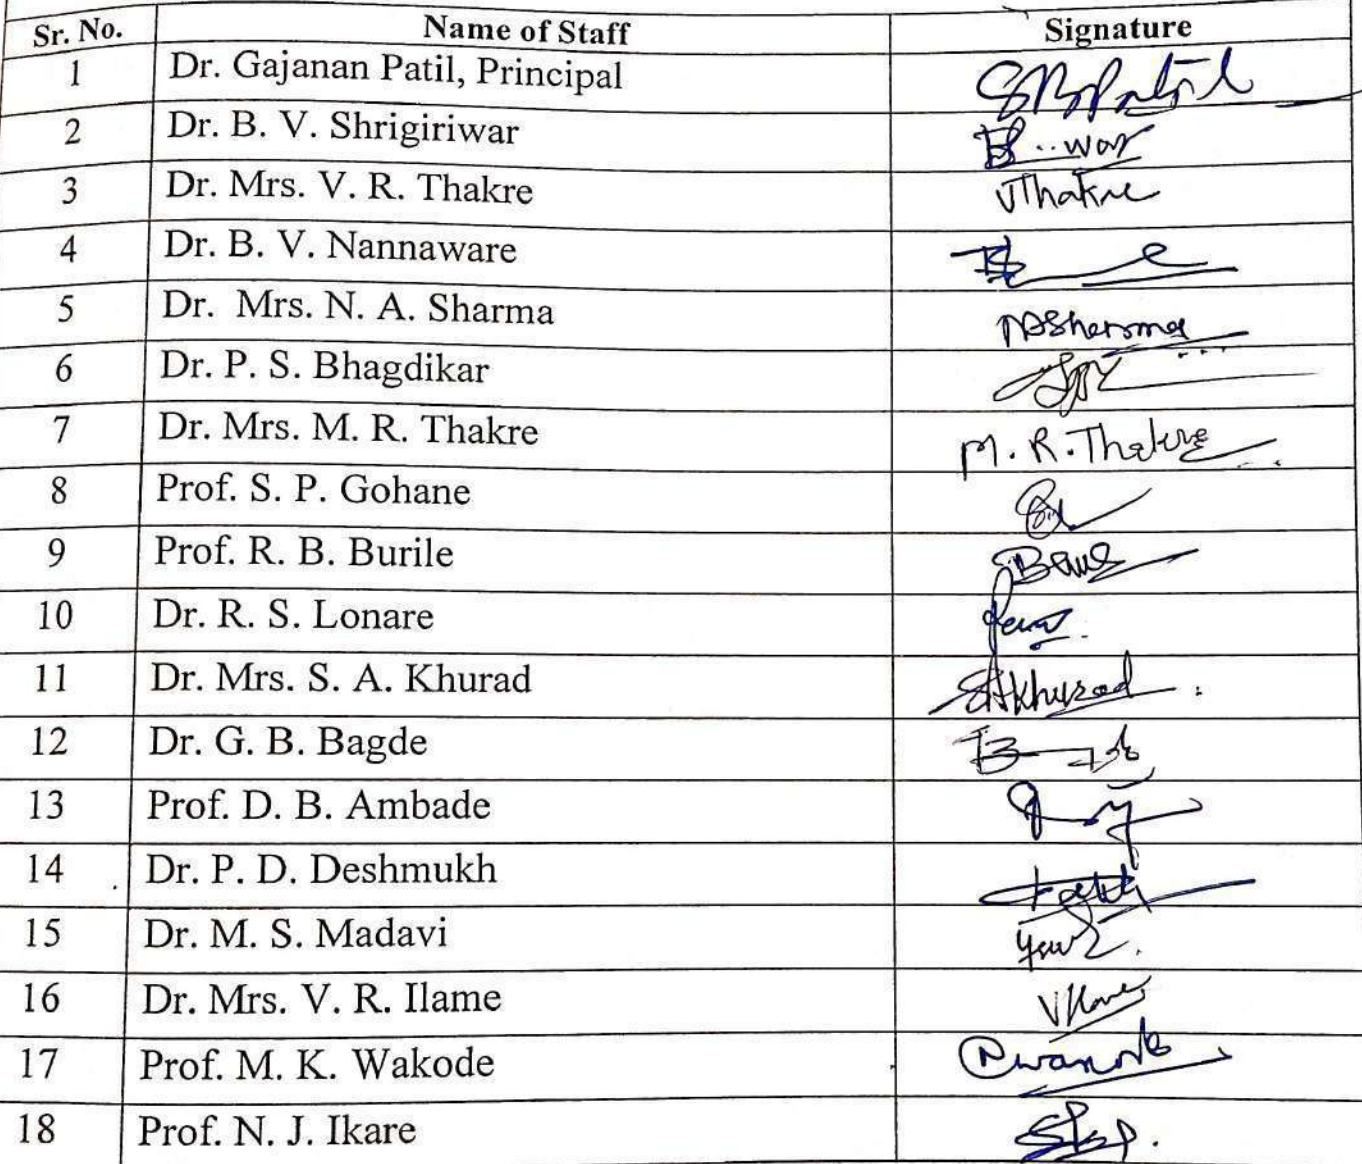 Sr. No. Name of Staff Signature
1 Dr. Gajanan Patil, Principal
2 Dr. B. V. Shrigiriwar
3 Dr. Mrs. V. R. Thakre VThakre
4 Dr. B. V. Nannaware
5 Dr. Mrs. N. A. Sharma NASharma
6 Dr. P. S. Bhagdikar
7 Dr. Mrs. M. R. Thakre M. R. Thakre
8 Prof. S. P. Gohane
9 Prof. R. B. Burile
10 Dr. R. S. Lonare
11 Dr. Mrs. S. A. Khurad SAKhurad
12 Dr. G. B. Bagde
13 Prof. D. B. Ambade
14 Dr. P. D. Deshmukh
15 Dr. M. S. Madavi
16 Dr. Mrs. V. R. Ilame
17 Prof. M. K. Wakode
18 Prof. N. J. Ikare